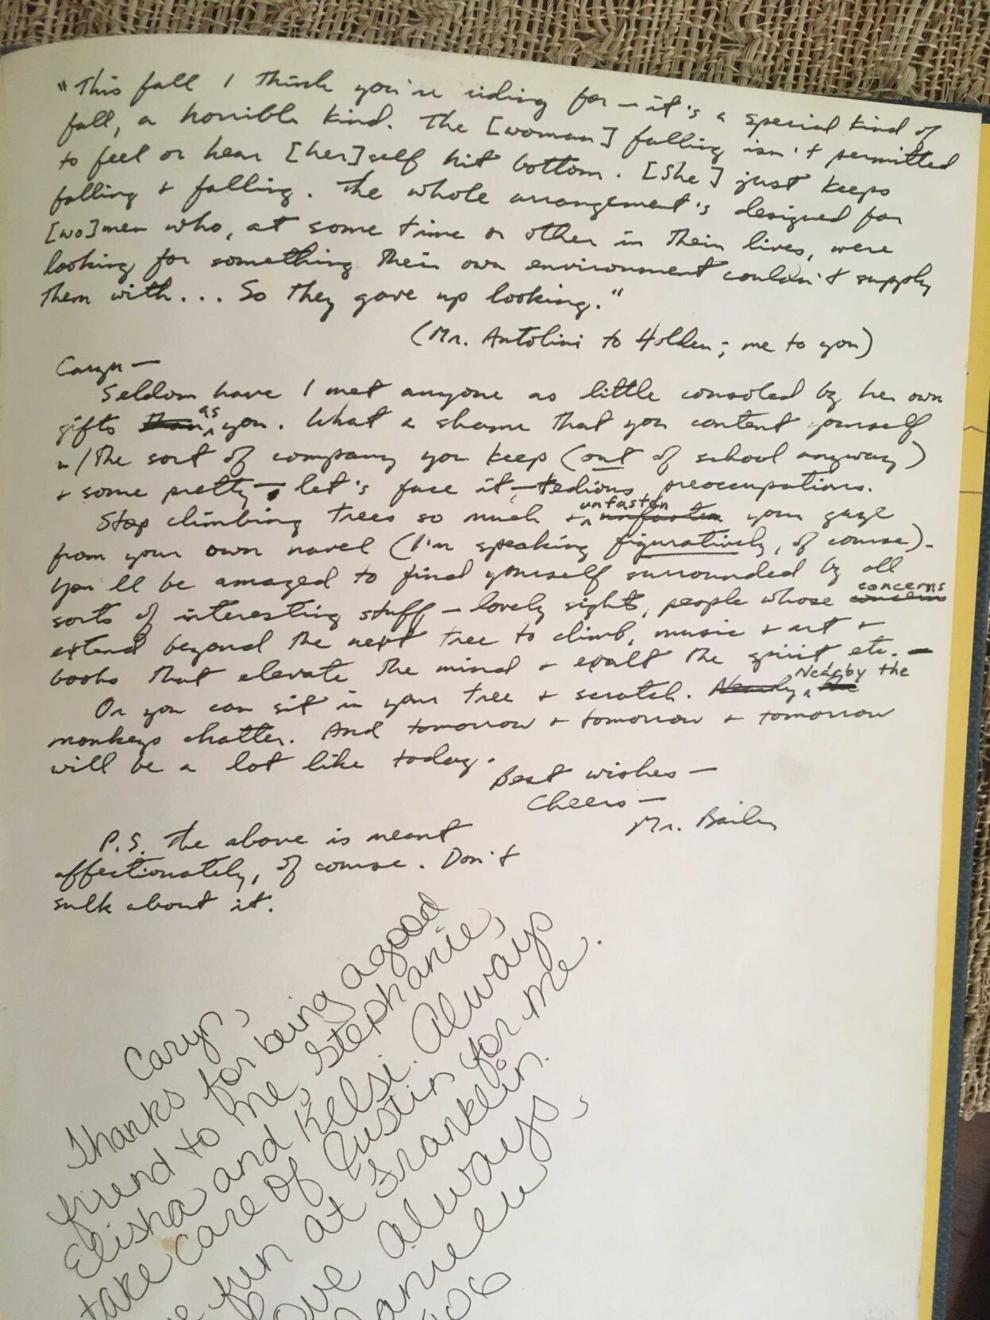 "This fall I think you're riding for — it's a special kind of
fall, a horrible kind. The [woman] falling isn't permitted
to feel or hear [her]self hit bottom. [She] just keeps
falling & falling. The whole arrangement's designed for
[wo]men who, at some time or other in their lives, were
looking for something their own environment couldn't supply
them with... So they gave up looking."
(Mr. Antolini to Holden; me to you)
Caryn—
Seldom have I met anyone as little consoled by her own
gifts than as you. What a shame that you content yourself
w/ the sort of company you keep (out of school anyway)
& some pretty — let's face it — tedious preoccupations.
Stop climbing trees so much & unfasten unfasten your gaze
from your own navel (I'm speaking figuratively, of course) –
you'll be amazed to find yourself surrounded by all
sorts of interesting stuff – lovely sights, people whose concerns concerns
extend beyond the next tree to climb, music & art &
books that elevate the mind & exalt the spirit etc. —
Or you can sit in your tree & scratch. Nearby the
monkeys chatter. And tomorrow & tomorrow & tomorrow
will be a lot like today.
Best wishes —
Cheers —
Mr. Bailey
P.S. The above is meant
affectionately, of course. Don't
sulk about it.
Caryn,
Thanks for being a good
friend to me, Stephanie,
Elisha and Kelsi. Always
take care of Justin for me.
fun at Franklin.
Love always,